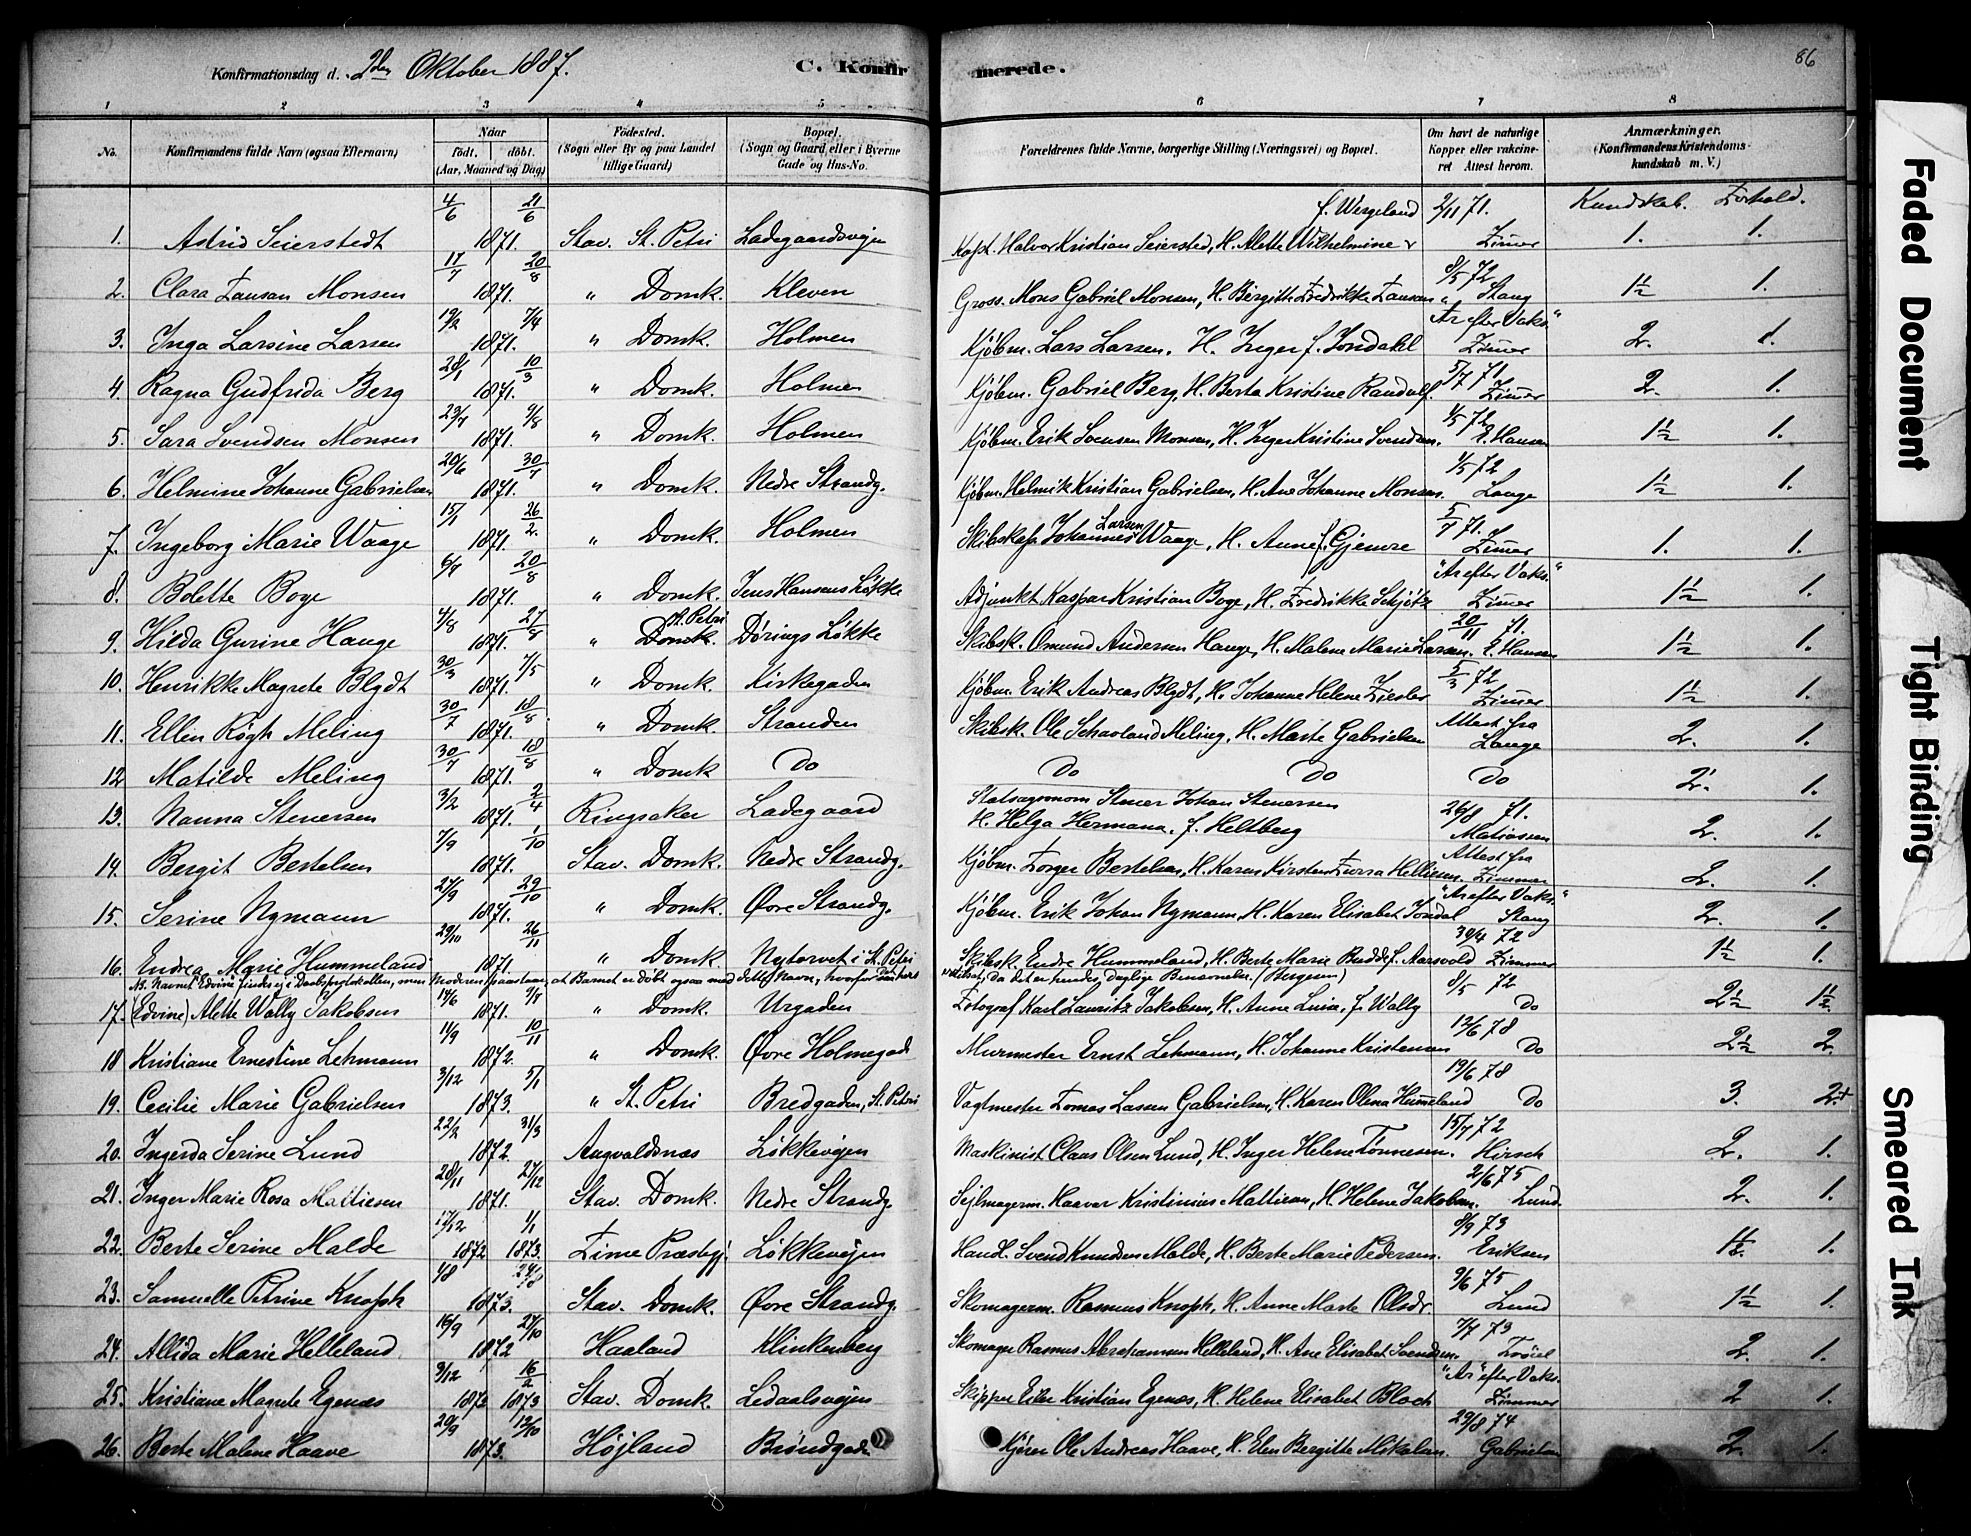 Konfirmationsdag d. 2den Oktober 1887.
C. Konfir merede.
86
1 2 3 4 5 6 7 8
No. Konfirmandens fulde Navn (ogsaa Efternavn) Naar født. døbt. (Aar, Maaned og Dag) Fødested. (Sogn eller By og paa Landet tillige Gaard) Bopæl. (Sogn og Gaard, eller i Byerne Gade og Hus-No. Forældrenes fulde Navne, borgerlige Stilling (Næringsvei) og Bopæl. Om havt de naturlige Kopper eller vakcineret Attest herom. Anmærkninger. (Konfirmandens Kristendomskundskab m. V.)
Kundskab. Forhold.
1. Astrid Seierstedt 4/6 1871. 21/6 Stav. St. Petri Ladegaardsvejen Kapt. Halvor Kristian Seiersted, H. Alette Wilhelmine f. Wergeland 2/11 71. Zimer 1. 1.
2. Clara Fansan Monsen 17/7 1871. 20/8 " Domk. Kleven Gross. Mons Gabriel Monsen, H. Birgitte Fredrikke Fansan 8/5 72 Stang 1½ 1.
3. Inga Larsine Larsen 19/2 1871. 7/4 " Domk. Holmen Kjøbm. Lars Larsen, H. Inger f. Jondahl "Ar efter Vaks." Zimer 2. 1.
4. Ragna Gudfrida Berg 28/1 1871. 10/3 " Domk. Holmen Kjøbm. Gabriel Berg, H. Berta Kristine Randulf. 5/7 71. Zimer 2. 1.
5. Sara Svendsen Monsen 23/7 1871. 9/8 " Domk. Holmen Kjøbm. Erik Svensen Monsen, H. Inger Kristine Svendsen. 1/5 72 E. Hansen 1½ 1.
6. Helmine Johanne Gabrielsen 20/6 1871. 30/7 " Domk. Nedre Strandg. Kjøbm. Helmik Kristian Gabrielsen, H. Ane Johanne Monsen. 1/5 72 Lange 1½ 1.
7. Ingeborg Marie Waage 15/1 1871. 26/2. " Domk. Holmen Skibskapt Johannes Larsen Waage, H. Anne f. Gjemre 5/7 71. Zimer 1. 1.
8. Bolette Boge 6/7 1871. 20/8 " Domk. Jens Hansens Løkke Adjunkt Kaspar Kristian Boge, H. Fredrikke Schjøtz "Ar efter Vaks." Zimer 1½ 1.
9. Hilda Gurine Hauge 4/8 1871. 27/8 " Domk. St. Petri Dørings Løkke Skibsk. Omund Andersen Hauge, H. Malene Marie Larsen. 20/11 71. E. Hansen 1½ 1.
10. Henrikke Magrete Blydt 30/3 1871. 7/5 " Domk. Kirkegaden Kjøbm. Erik Andreas Blydt, H. Johanne Helene Ziesler 5/3 72 Zimer 1½ 1.
11. Ellen Køgh Meling 30/7 1871. 18/8. " Domk. Stranden Skibsk. Ole Schavland Meling, H. Marte Gabrielsen Attest fra Lange 2. 1.
12 Matilde Meling 30/7 1871. 18/8 " Domk Do Do Do Do 2. 1.
13. Nanna Stenersen 3/2 1871. 2/4 Ringsaker Ladegaard Statsagronom Stener Johan Stenersen H. Helga Hermana. f. Heltberg 26/8 71. Matiassen 2. 1.
14. Bergit Bertelsen 7/9 1871. 1/10 Stav. Domk. Nedre Strandg. Kjøbm. Torger Bertelsen, H. Karen Kirstine Helliesen. Attest fra Zimmer 2. 1.
15. Serine Nymann 27/9 1871. 29/10 " Domk. Øvre Strandg. Kjøbm. Erik Johan Nymann, H. Karen Elisabet Jondal "Ar efter Vaks." Stang 2. 1.
16. Endrea Marie Hummeland 29/10 1871. 26/11 " Domk. Nytorvet i St. Petri Skibsk. Endre Hummeland, H. Berte Marie Budde f. Aarsvold 30/4 72 Zimmer 1½ 1.
NB. Navnet Edvine findes ej i Daabsprotokollen, men Moderen paastaar, at Barnet er døbt ogsaa med dette Navn, hvorfor da det er hendes daglige Benævnelse. (Bergesen)
17. (Edvine) Alette Wally Jakobsen 14/6 1871. 9/7 " Domk. Urgaden Fotograf Karl Lauritz Jakobsen, H. Anne Luise, f. Wally 8/5 72 Do 2½ 1½
18 Kristiane Ernestine Lehmann 11/9 1872. 10/11 " Domk. Øvre Holmegad Murmester Ernst Lehmann, H. Johanne Kristensen 12/6 78 Do 2½ 2.
19. Cecilie Marie Gabrielsen 3/12 1873. 5/1 " St. Petri Bredgaden, St. Petri Vagtmester Tomas Lassen Gabrielsen, H. Karen Olena Hummeland 19/6 78 Do 3. 2.+
20. Ingerda Serine Lund 22/2 1872. 31/3 Augvaldsnæs Løkkevejen Maskinist Claus Olsen Lund, H. Inger Helene Tønnesen. 15/7 72 Hirsch 2. 1.
21. Inger Marie Rosa Mattiesen 28/11 1871. 27/12 Stav. Domk. Nedre Strandg. Sejlmagerm. Haavar Kristinius Mattiesen, H. Helene Jakobsen. 2/6 75 Lund. 2. 1.
22. Berte Serine Malde 17/12 1872 1/1 1873. Time Præstegj. Løkkevejen Handl. Svend Knudsen Malde, H. Berte Marie Pedersen. 8/9 73 Eriksen 1½. 1.
23. Samuelle Petrine Knoph 1/8 1873. 24/8 Stav. Domk. Øvre Strandg. Skomagerm. Rasmus Knoph, H. Anne Marte Olsdr. 9/6 75 Lund 1½ 1.
24. Allida Marie Helleland 16/9 1872 27/10 Haaland Klinkenberg Skomager Rasmus Abrahamsen Helleland, H. Ane Elisabet Svendsen. 7/7 73 2. 1.
25. Kristiane Magrete Egenæs 9/12 1872 16/2 1873 Stav. Domk. Ledaalsvejen Skipper Eiler Kristian Egenæs, H. Helene Elisabet Bloch "Ar" efter Vaks. Zimmer 2 1.
26. Berte Malene Haave 20/9 1873. 12/10 Højland Brøndgade Kjører Ole Andreas Haave, H. Elen Bergitte Mikalsen. 29/8 74 Gabrielsen 2. 1.
Faded Document
Tight Binding
Smeared Ink